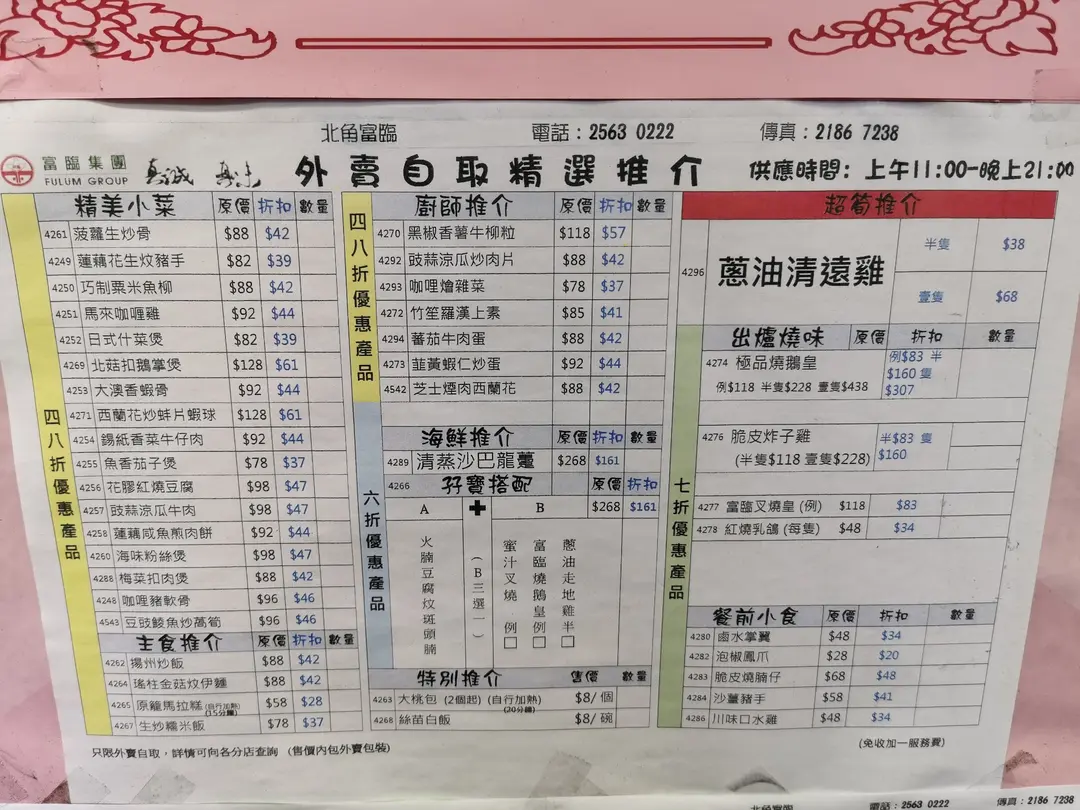 北角富臨 電話：2563 0222 傳真：2186 7238
富臨集團
FULUM GROUP
真誠 真味
外賣自取精選推介
供應時間：上午11:00-晚上21:00
四八折優惠產品
精美小菜 原價 折扣 數量
4261 菠蘿生炒骨 $88 $42
4249 蓮藕花生炆豬手 $82 $39
4250 巧制粟米魚柳 $88 $42
4251 馬來咖喱雞 $92 $44
4252 日式什菜煲 $82 $39
4269 北菇扣鵝掌煲 $128 $61
4253 大澳香蝦骨 $92 $44
4271 西蘭花炒蚌片蝦球 $128 $61
4254 錫紙香菜牛仔肉 $92 $44
4255 魚香茄子煲 $78 $37
4256 花膠紅燒豆腐 $98 $47
4257 豉蒜涼瓜牛肉 $98 $47
4258 蓮藕咸魚煎肉餅 $92 $44
4260 海味粉絲煲 $98 $47
4288 梅菜扣肉煲 $88 $42
4248 咖喱豬軟骨 $96 $46
4543 豆豉鯪魚炒萵筍 $96 $46
主食推介 原價 折扣 數量
4262 揚州炒飯 $88 $42
4264 瑤柱金菇炆伊麵 $88 $42
4265 原籠馬拉糕(自行加熱) (15分鐘) $58 $28
4267 生炒糯米飯 $78 $37
四八折優惠產品
廚師推介 原價 折扣 數量
4270 黑椒香薯牛柳粒 $118 $57
4292 豉蒜涼瓜炒肉片 $88 $42
4293 咖哩燴雜菜 $78 $37
4272 竹笙羅漢上素 $85 $41
4294 蕃茄牛肉蛋 $88 $42
4273 韮黃蝦仁炒蛋 $92 $44
4542 芝士煙肉西蘭花 $88 $42
六折優惠產品
海鮮推介 原價 折扣 數量
4289 清蒸沙巴龍躉 $268 $161
4266 孖寶搭配 原價 折扣
A ✚ B $268 $161
火腩豆腐炆斑頭腩
(B三選一)
蜜汁叉燒 例□
富臨燒鵝皇 例□
蔥油走地雞 半□
特別推介 售價 數量
4263 大桃包 (2個起) (自行加熱) (20分鐘) $8/個
4268 絲苗白飯 $8/碗
超筍推介
4296 蔥油清遠雞 半隻 $38
壹隻 $68
七折優惠產品
出爐燒味 原價 折扣 數量
4274 極品燒鵝皇
例$118 半隻$228 壹隻$438
例$83 半
$160 隻
$307
4276 脆皮炸子雞
(半隻$118 壹隻$228)
半$83 隻
$160
4277 富臨叉燒皇 (例) $118 $83
4278 紅燒乳鴿 (每隻) $48 $34
餐前小食 原價 折扣 數量
4280 鹵水掌翼 $48 $34
4282 泡椒鳳爪 $28 $20
4283 脆皮燒腩仔 $68 $48
4284 沙薑豬手 $58 $41
4286 川味口水雞 $48 $34
只限外賣自取，詳情可向各分店查詢 (售價內包外賣包裝)
(免收加一服務費)
北角富臨 電話：2563 0222 傳真：2186 7238